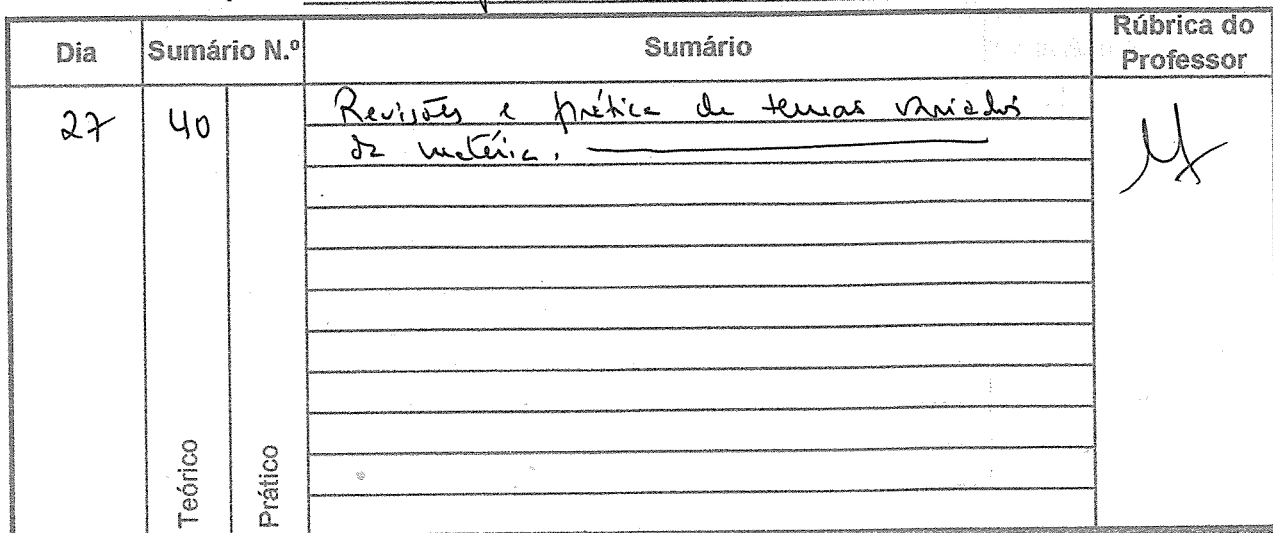 Dia Sumário N.º Sumário Rúbrica do Professor
27 40 Revisões e prática de temas variados
da matéria.
Teórico Prático